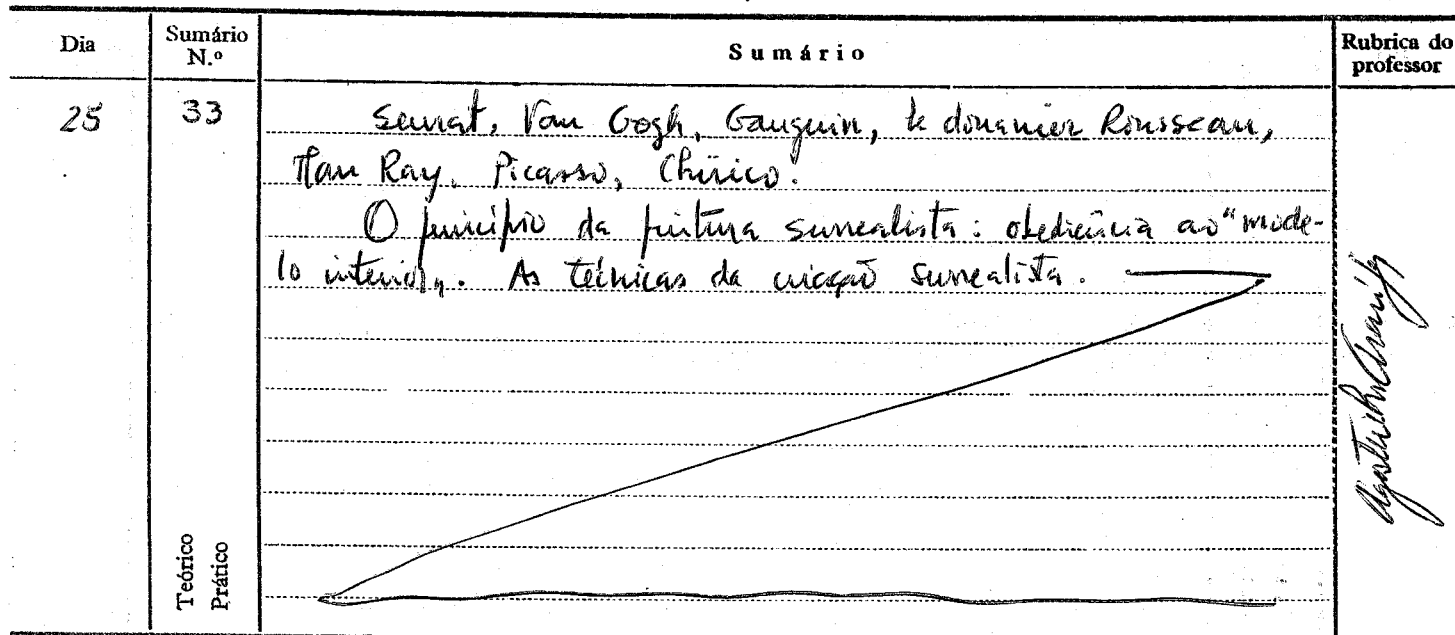 Dia Sumário N.º Sumário Rubrica do professor
25 33 Seurat, Van Gogh, Gauguin, le douanier Rousseau,
Man Ray, Picasso, Chirico.
O princípio da pintura surrealista: obediência ao "mode-
lo interior". As técnicas da criação surrealista.
Teórico
Prático